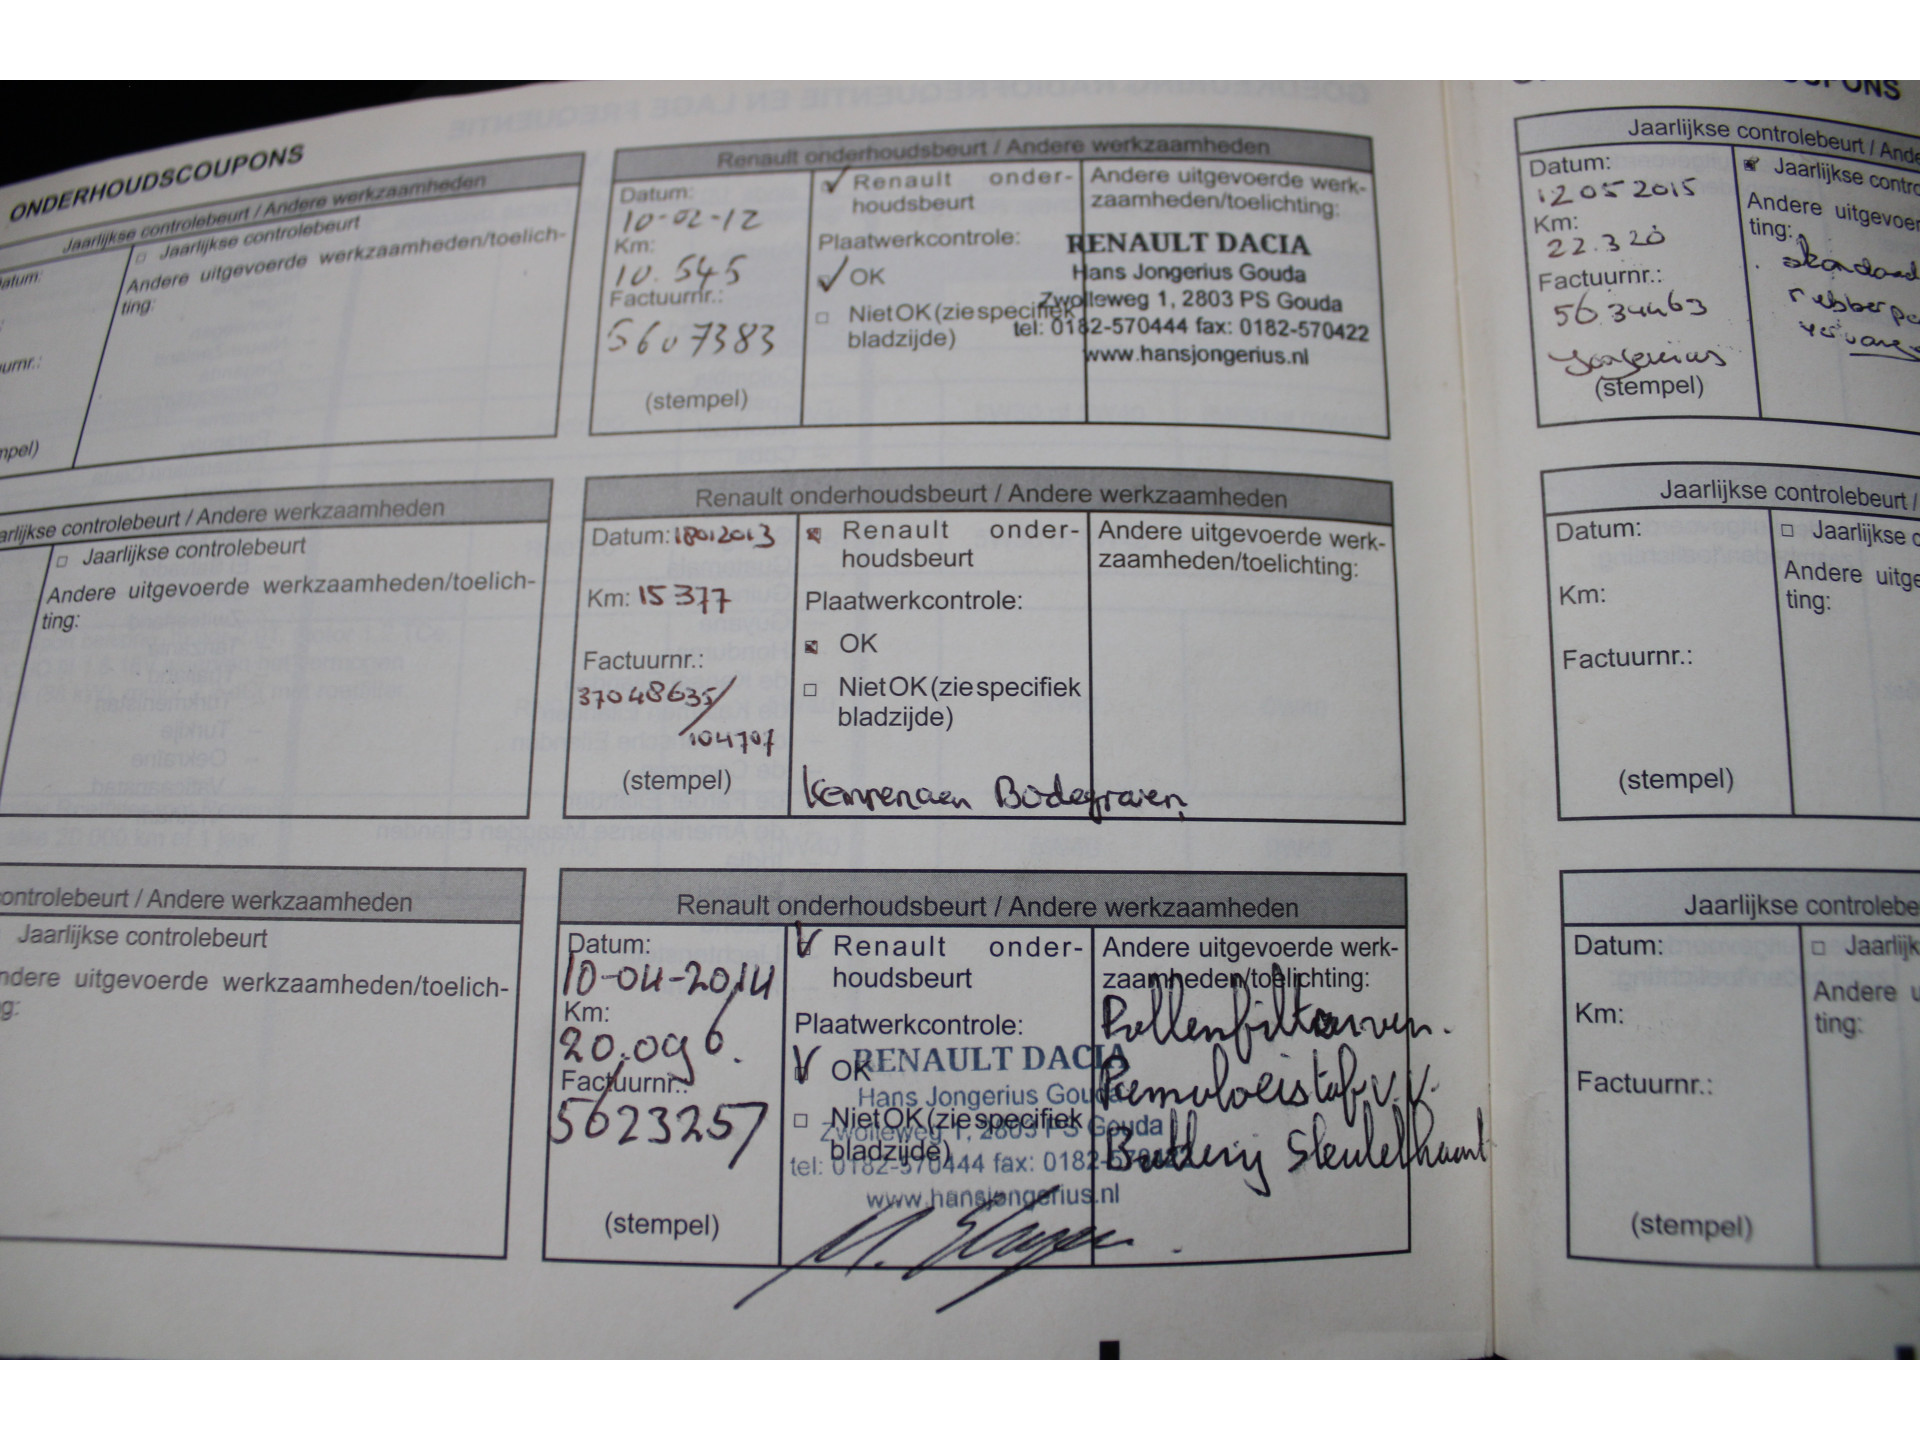 ONDERHOUDSCOUPONS
Jaarlijkse controlebeurt / Andere werkzaamheden
Jaarlijkse controlebeurt
Andere uitgevoerde werkzaamheden/toelich-
ting:
atum:
urnr.:
mpel)
Renault onderhoudsbeurt / Andere werkzaamheden
Datum:
10-02-12
Km:
10.545
Factuurnr.:
5607383
(stempel)
Renault onder-
houdsbeurt
Plaatwerkcontrole:
OK
Niet OK (zie specifiek
bladzijde)
Andere uitgevoerde werk-
zaamheden/toelichting:
RENAULT DACIA
Hans Jongerius Gouda
Zwolleweg 1, 2803 PS Gouda
tel: 0182-570444 fax: 0182-570422
www.hansjongerius.nl
arlijkse controlebeurt / Andere werkzaamheden
Jaarlijkse controlebeurt
Andere uitgevoerde werkzaamheden/toelich-
ting:
Renault onderhoudsbeurt / Andere werkzaamheden
Datum: 18012013
Km: 15377
Factuurnr.:
37048635/
104707
(stempel)
Renault onder-
houdsbeurt
Plaatwerkcontrole:
OK
Niet OK (zie specifiek
bladzijde)
Andere uitgevoerde werk-
zaamheden/toelichting:
Bodegraven
ontrolebeurt / Andere werkzaamheden
Jaarlijkse controlebeurt
ndere uitgevoerde werkzaamheden/toelich-
g:
Renault onderhoudsbeurt / Andere werkzaamheden
Datum:
10-04-2014
Km:
20.096.
Factuurnr.:
5623257
(stempel)
Renault onder-
houdsbeurt
Plaatwerkcontrole:
OK
Niet OK (zie specifiek
bladzijde)
RENAULT DACIA
Hans Jongerius Gouda
Zwolleweg 1, 2803 PS Gouda
tel: 0182-570444 fax: 0182-570422
www.hansjongerius.nl
Andere uitgevoerde werk-
zaamheden/toelichting:
Pollenfilter verv.
Remvloeistof v.v.
Batterij Sleutelkaart
OUPONS
Jaarlijkse controlebeurt / Ande
Datum:
12 05 2015
Km:
22.320
Factuurnr.:
5634463
Jongerius
(stempel)
Jaarlijkse contro
Andere uitgevoer
ting:
standaard
Jaarlijkse controlebeurt /
Datum:
Km:
Factuurnr.:
(stempel)
Jaarlijkse c
Andere uitge
ting:
Jaarlijkse controlebe
Datum:
Km:
Factuurnr.:
(stempel)
Jaarlijk
Andere u
ting: